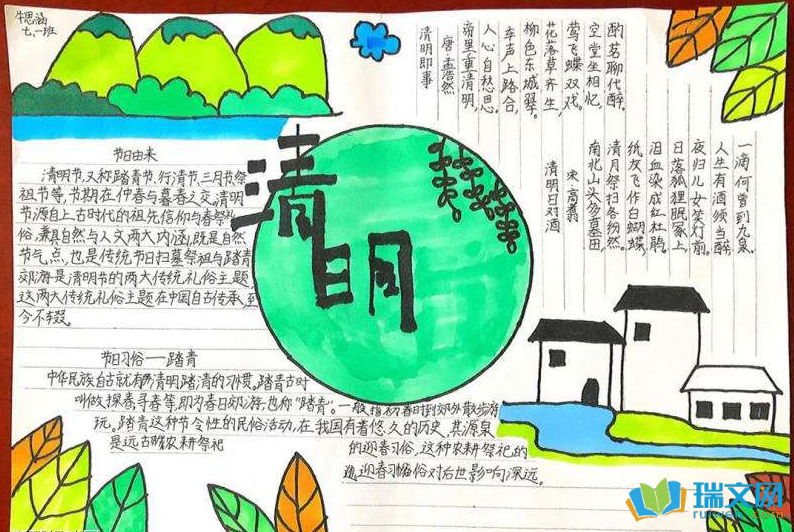 牛思涵
七.一班
清明即事
唐 孟浩然
帝里重清明,
人心自愁思。
车声上路合,
柳色东城翠。
花落草齐生,
莺飞蝶双戏。
空堂坐相忆,
酌茗聊代醉。
清明日对酒
宋 高翥
南北山头多墓田
清月祭扫各纷然
纸灰飞作白蝴蝶
泪血染成红杜鹃
日落狐狸眠冢上
夜归儿女笑灯前。
人生有酒须当醉
一滴何曾到九泉
清明
节日由来
清明节,又称踏青节、行清节、三月节祭
祖节等,节期在仲春与暮春之交。清明
节源自上古时代的祖先信仰与春祭礼
俗,兼具自然与人文两大内涵,既是自然
节气点,也是传统节日扫墓祭祖与踏青
郊游是清明节的两大传统礼俗主题
这两大传统礼俗主题在中国自古传承,至
今不辍。
节日习俗——踏青
中华民族自古就有清明踏清的习惯。踏青古时
叫做探春、寻春等,即为春日郊游,也称"踏青"。一般指初春时到郊外散步游
玩。踏青这种节令性的民俗活动,在我国有着悠久的历史,其源泉
是远古农耕祭祀的迎春习俗,这种农耕祭祀的
迎春习俗对后世影响深远。
瑞文网